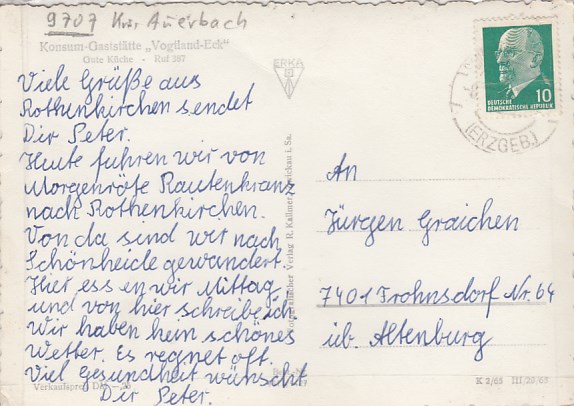 9707 Krs. Auerbach
Konsum-Gaststätte „Vogtland-Eck"
Gute Küche - Ruf 387
Viele Grüße aus
Rothenkirchen sendet
Dir Peter.
Heute fuhren wir von
Morgenröte Rautenkranz
nach Rothenkirchen.
Von da sind wir nach
Schönheide gewandert.
Hier essen wir Mittag
und von hier schreibe ich,
Wir haben kein schönes
Wetter. Es regnet oft.
Viel Gesundheit wünscht
Dir Peter.
Verkaufspreis DM
ERKA
Verlag R. Kallmer, Zwickau i. Sa.
10
DEUTSCHE
DEMOKRATISCHE REPUBLIK
(ERZGEB.)
An
Jürgen Graichen
7401 Frohnsdorf Nr. 64
üb. Altenburg
K 2/65 III/29/65